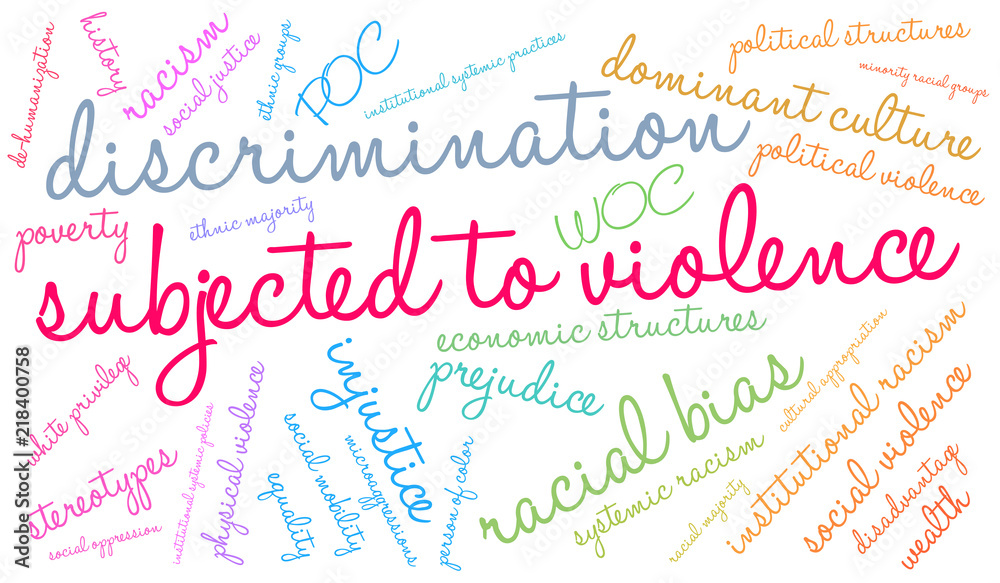 de-humanization
history
racism
social justice
ethnic groups
POC
institutional systemic practices
political structures
dominant culture
minority racial groups
discrimination
political violence
poverty
ethnic majority
WOC
subjected to violence
economic structures
prejudice
injustice
racial bias
cultural appropriation
institutional racism
white privileg
stereotypes
social oppression
institutional systemic policies
physical violence
equality
social mobility
microaggressions
person of color
systemic racism
racial majority
social violence
disadvantag
wealth
Adobe Stock | #218400758
Adobe Stock